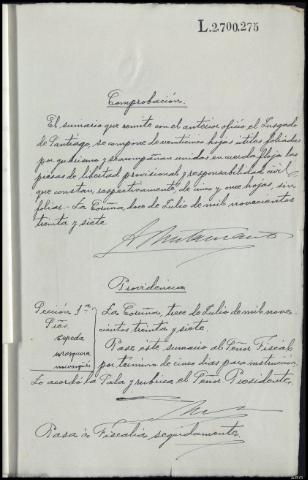 L.2.700.275
Comprobación.
El sumario que remite con el anterior oficio el Juzgado
de Santiago, se compone de veintinueve hojas útiles foliadas
por guarismo y acompañan unidas en cuerda floja las
piezas de libertad provisional y responsabilidad civil
que constan, respectivamente, de una y once hojas, sin
foliar.- La Coruña, doce de Julio de mil novecientos
treinta y siete
Providencia
Sección 1ª
Pías
Cepeda
La Coruña, trece de Julio de mil nove-
cientos treinta y siete
Pase este sumario al Señor Fiscal
por término de cinco días para instrucción.
Lo acordó la Sala y rubrica el Señor Presidente.
Pasa a Fiscalía seguidamente.